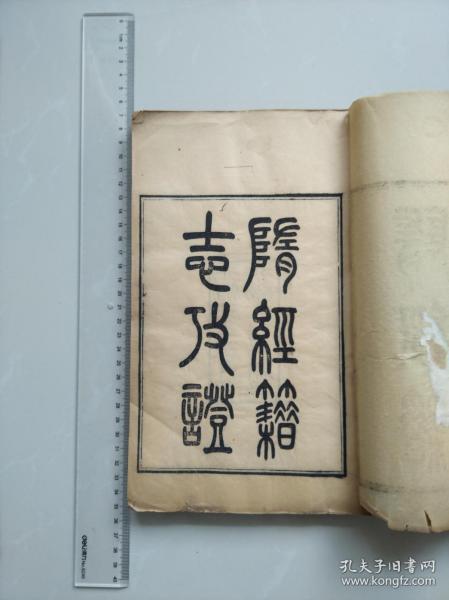 隋經籍
志攷證
孔夫子旧书网
www.kongfz.com